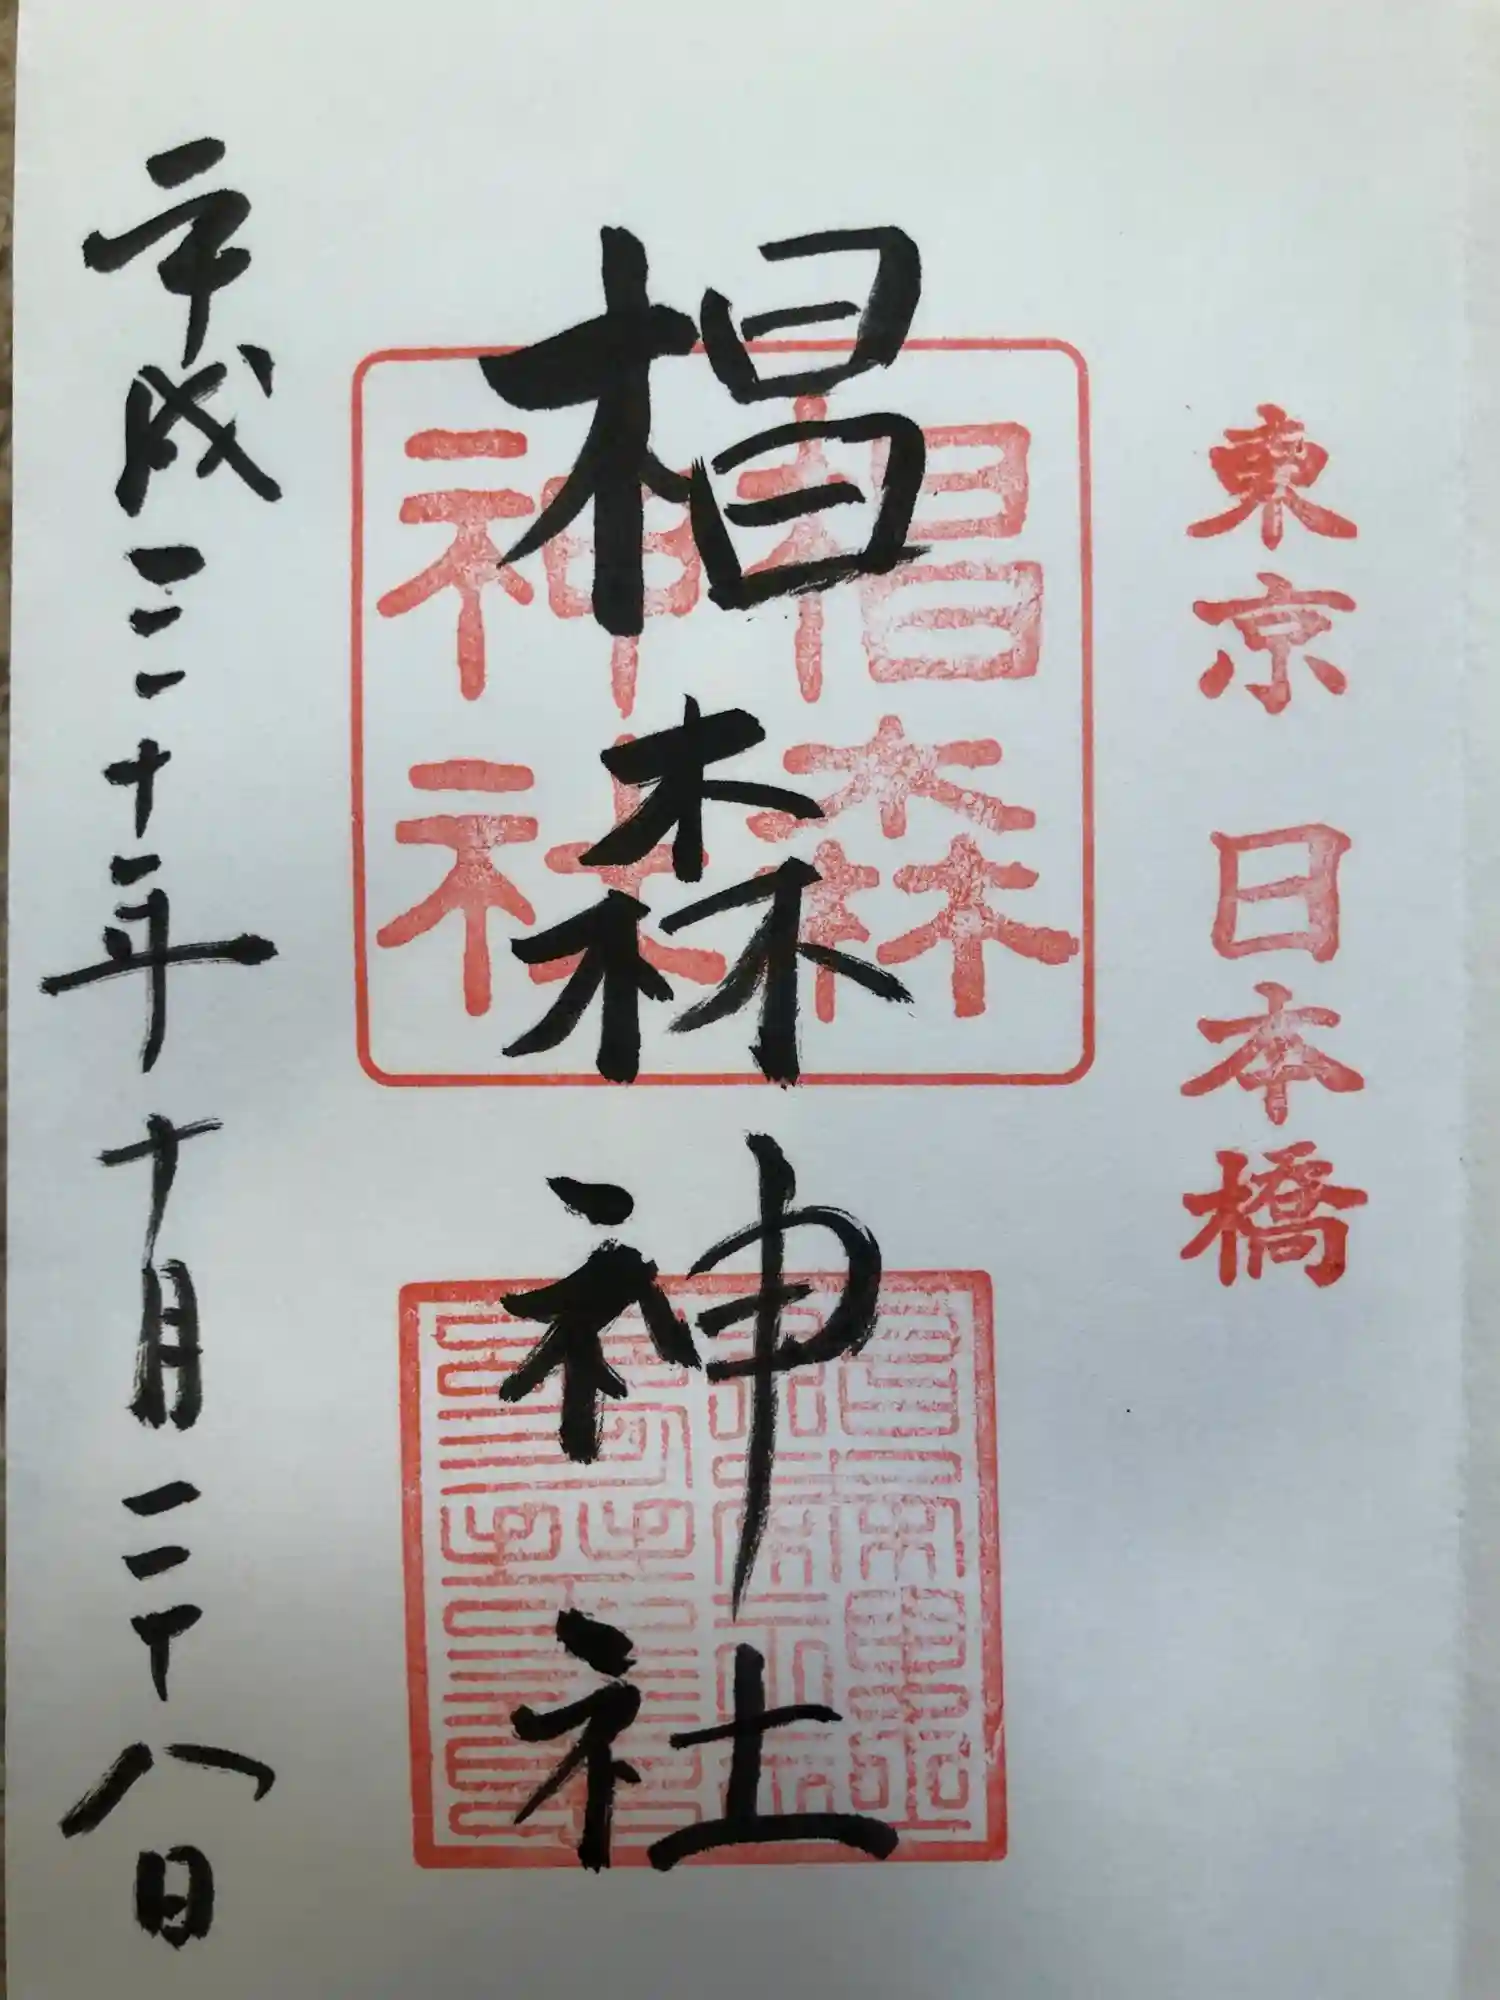 東京 日本橋
椙森神社
椙森
神社
平成三十年十月二十八日